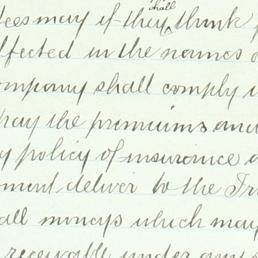 tees may if they shall think f
effected in the names o
ompany shall comply w
pay the premiums and
y policy of insurance a
ment deliver to the Tr
all moneys which may
receivable under any